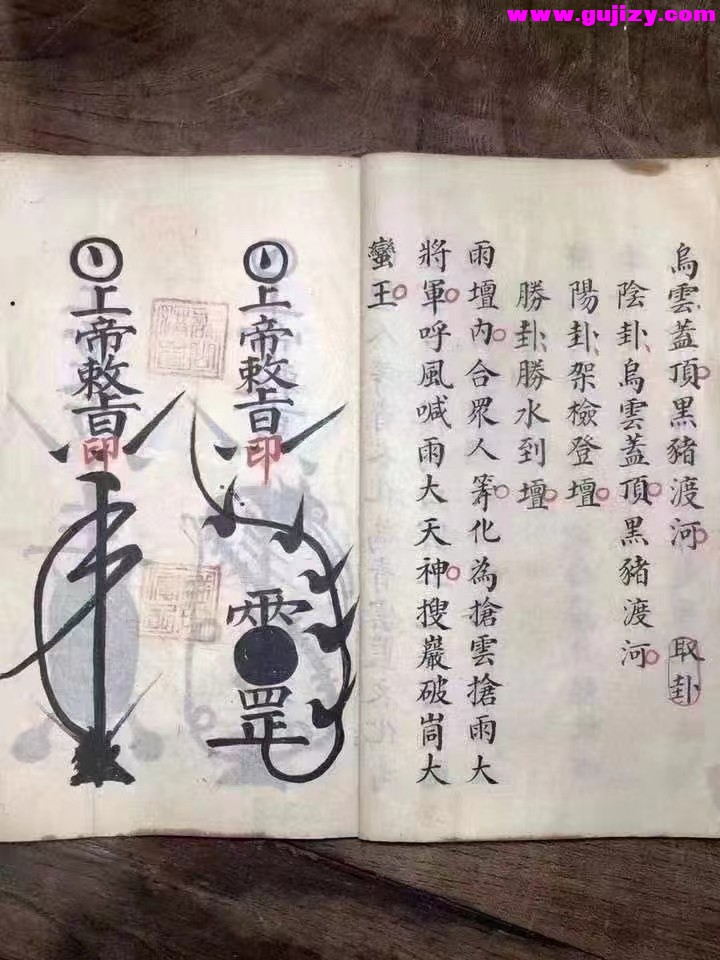 www.gujizy.com
烏雲蓋頂黑豬渡河 取卦
陰卦烏雲蓋頂黑豬渡河
陽卦架檢登壇
勝卦勝水到壇
雨壇內合眾人等化為搶雲搶雨大
將軍呼風喊雨大天神搜巖破峝大
蠻王
上帝敕旨
印
上帝敕旨
印